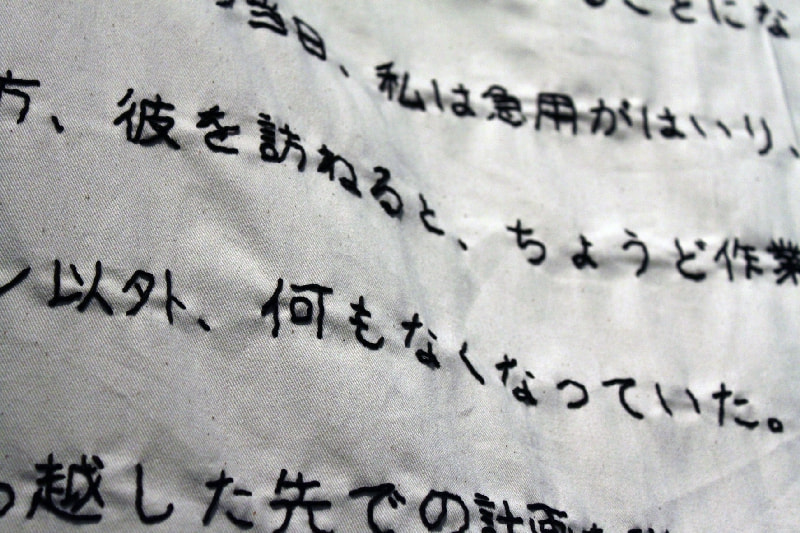 ことにな
当日、私は急用がはいり、
方、彼を訪ねると、ちょうど作業
以外、何もなくなっていた。
っ越した先での計画